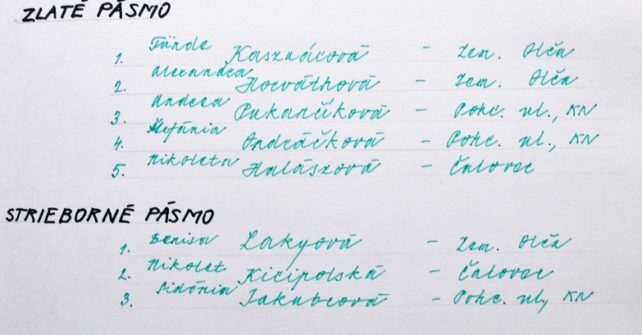 ZLATÉ PÁSMO
1. Tünde Kasznárová - Zem. Olča
2. Alexandra Horváthová - Zem. Olča
3. Andrea Pukančíková - Pohr. ul., KN
4. Štefánia Ondráčková - Pohr. ul., KN
5. Nikoleta Halászová - Čalovec
STRIEBORNÉ PÁSMO
1. Denisa Lakyová - Zem. Olča
2. Nikolet Kicipolská - Čalovec
3. Sidónia Jakubcová - Pohr. ul., KN